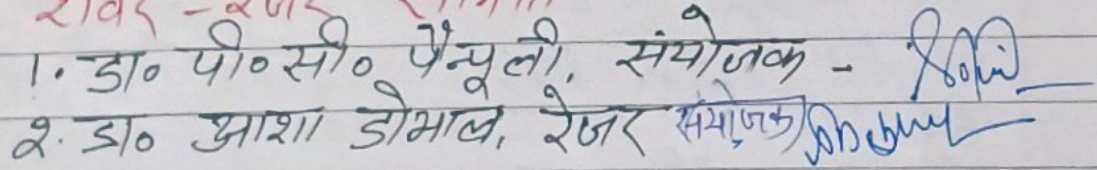 रोवर - रेंजर
1. डा० पी० सी० पैन्यूली, संयोजक -
२. डा० आशा डोभाल, रेंजर संयोजक